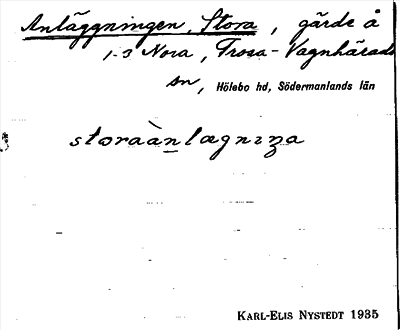 Anläggningen, Stora, gärde å
1-3 Nora, Trosa-Vagnhärads
sn, Hölebo hd, Södermanlands län
storaànlægnıŋa
KARL-ELIS NYSTEDT 1935